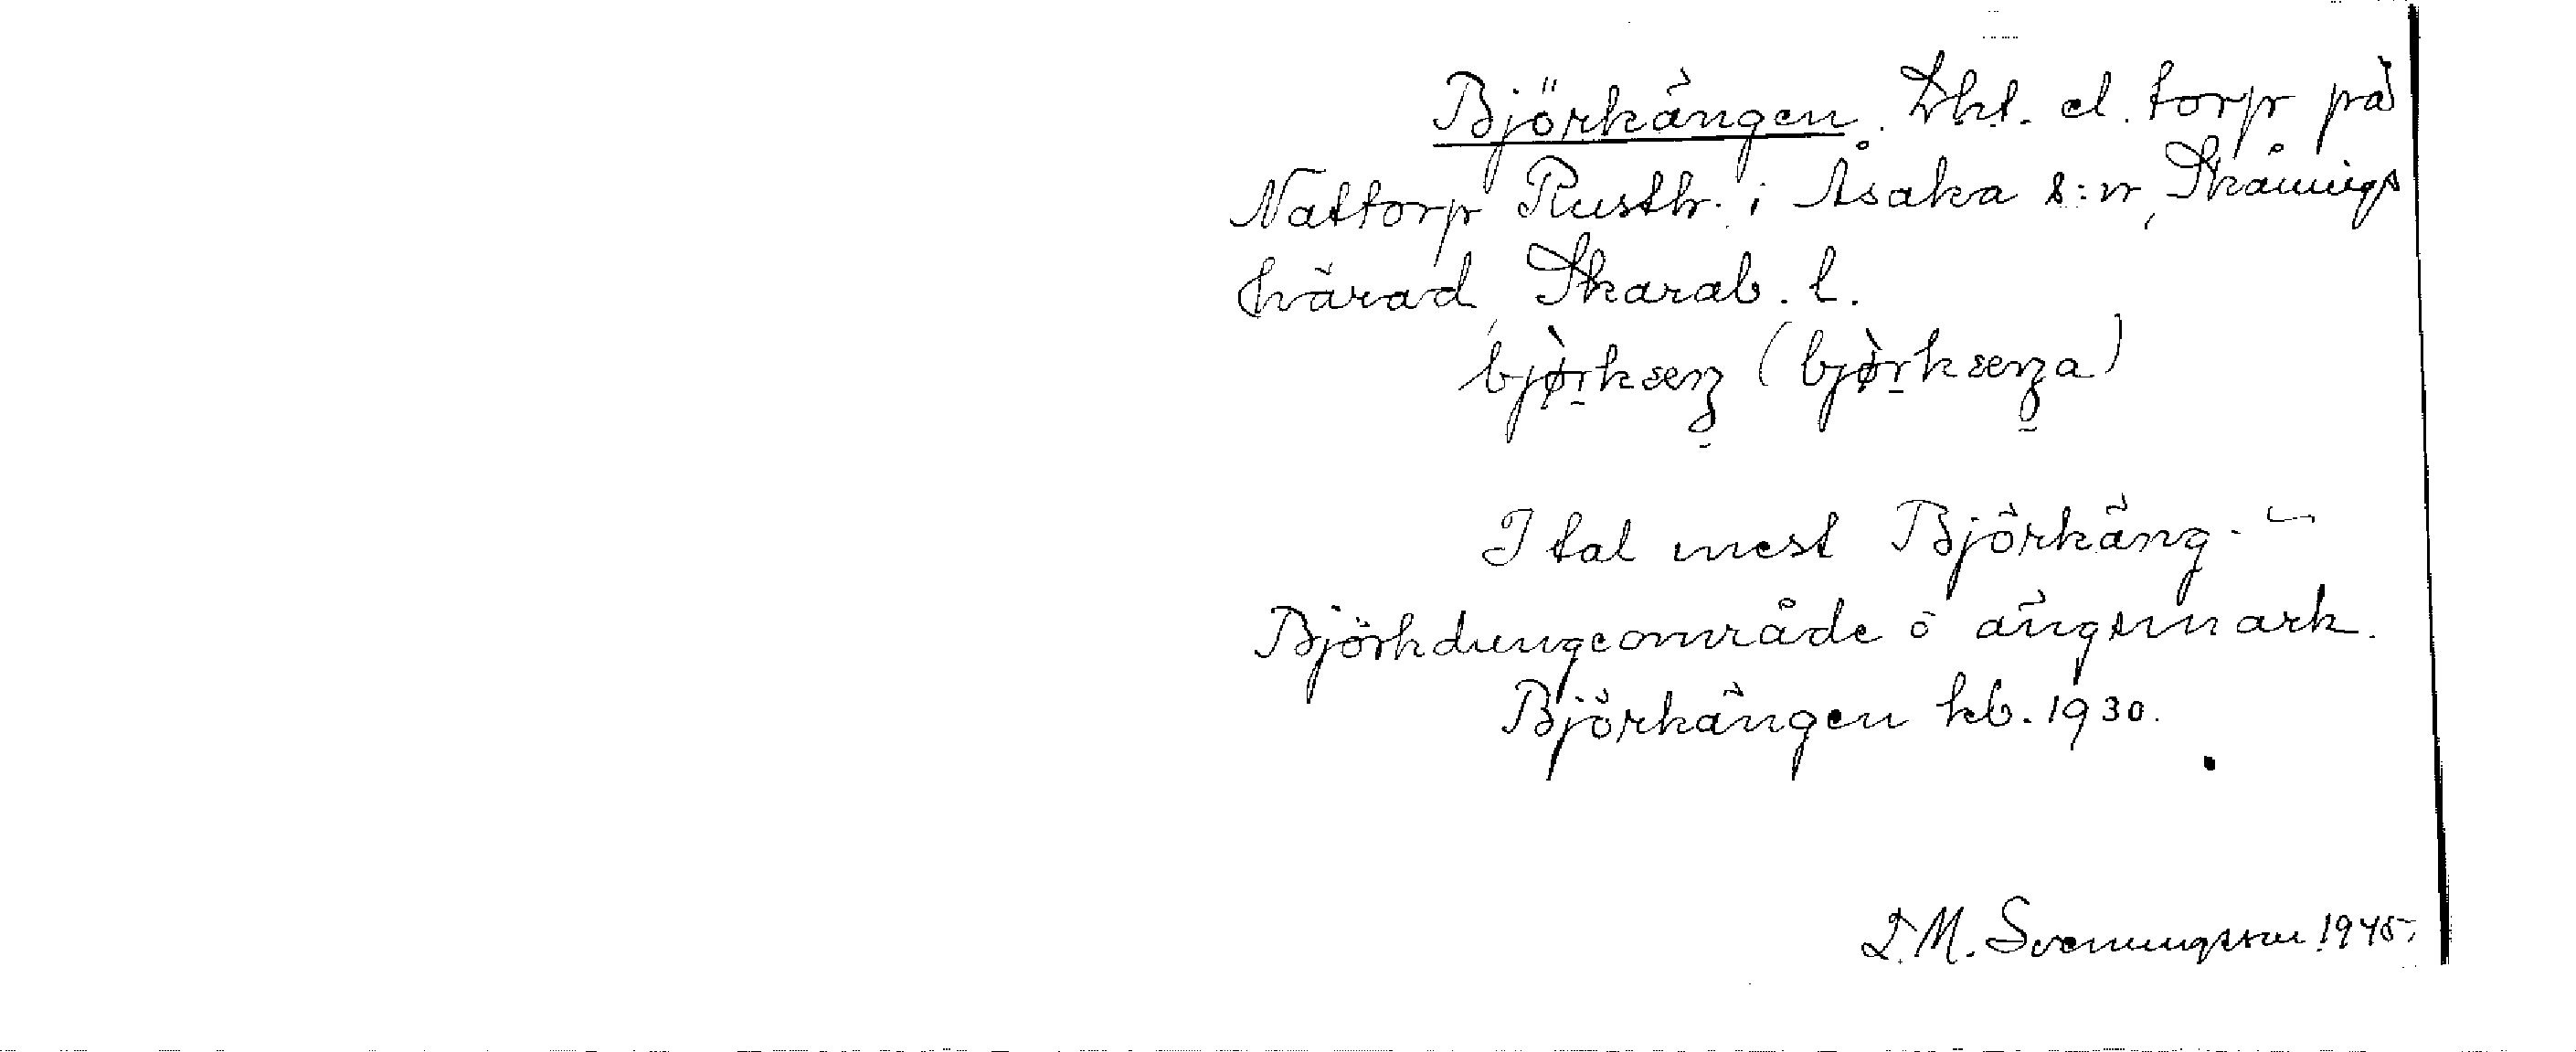 Björkängen. Lht. el. torp på
Nattorp Rusth. i Åsaka s:n, Skånings
härad, Skarab. l.
bjø̀rkæŋ (bjø̀rkæŋa)
I tal mest Björkäng. –
Björkdungeområde o ängsmark.
Björkängen kb. 1930.
D. M. Svenungsson 1945.